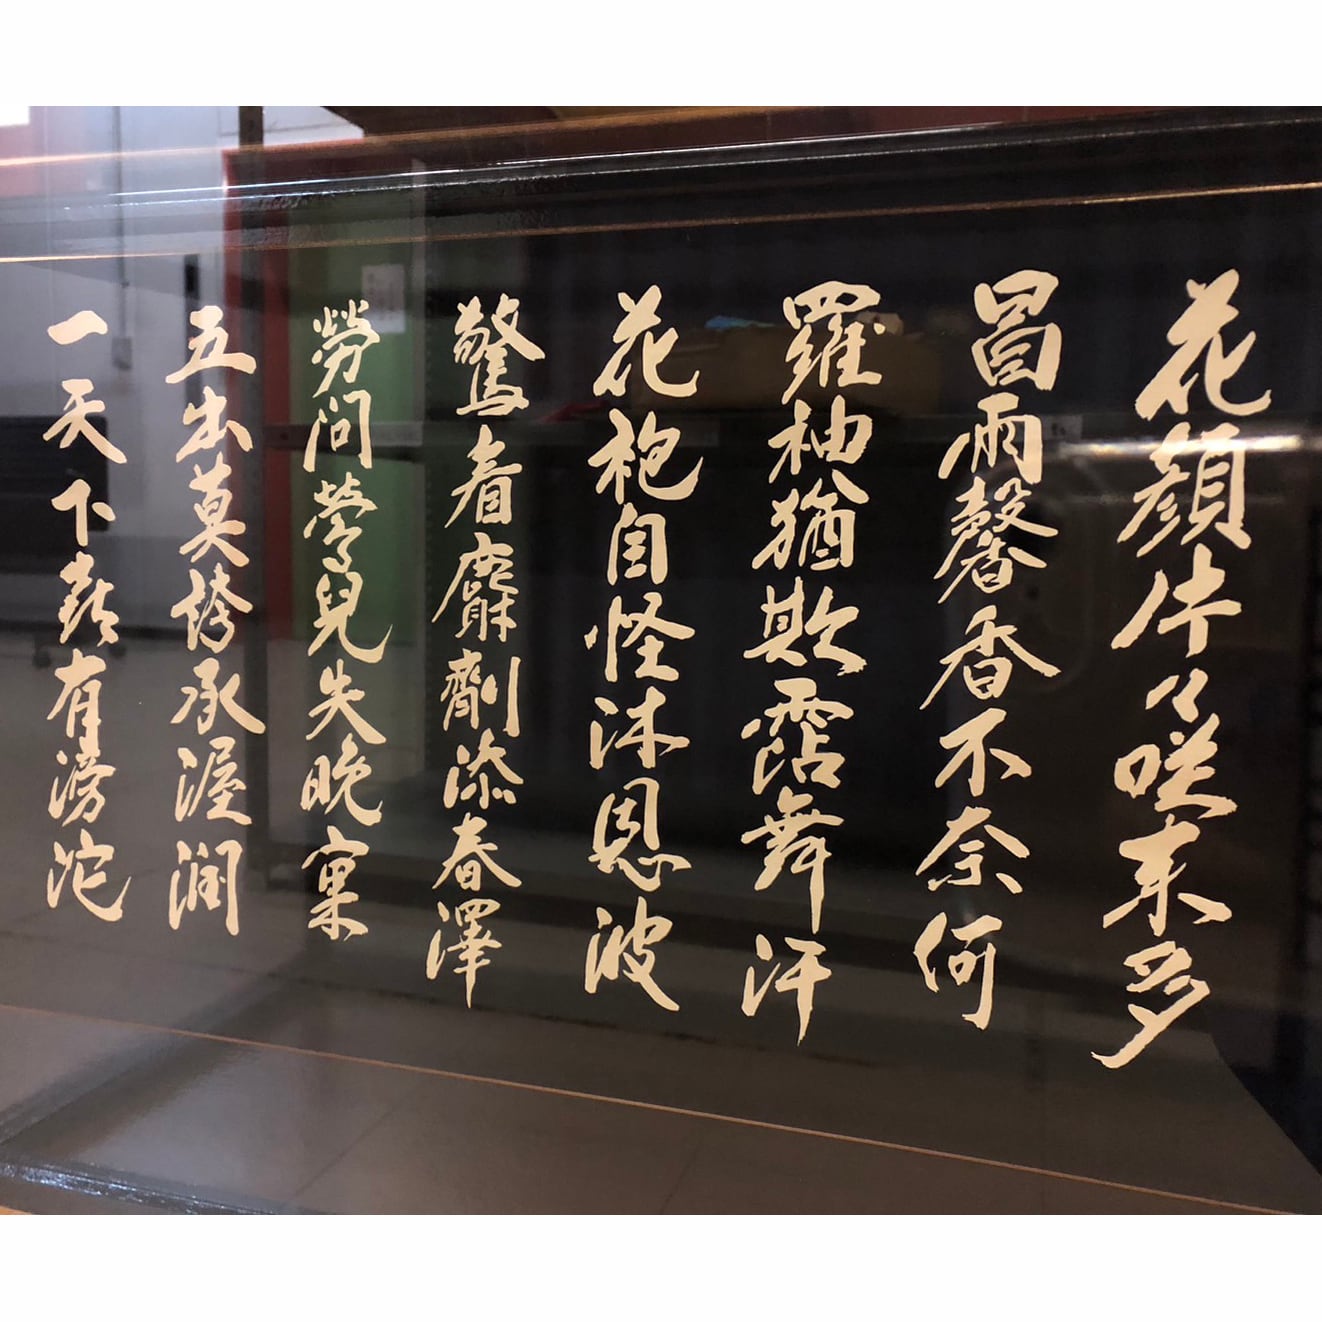 花顔片々咲来多
冒雨馨香不奈何
羅袖猶欺霑舞汗
花袍自怪沐恩波
驚看麝劑添春澤
勞問鶯兒失晩窠
五出莫誇承渥潤
一天下有滂沱